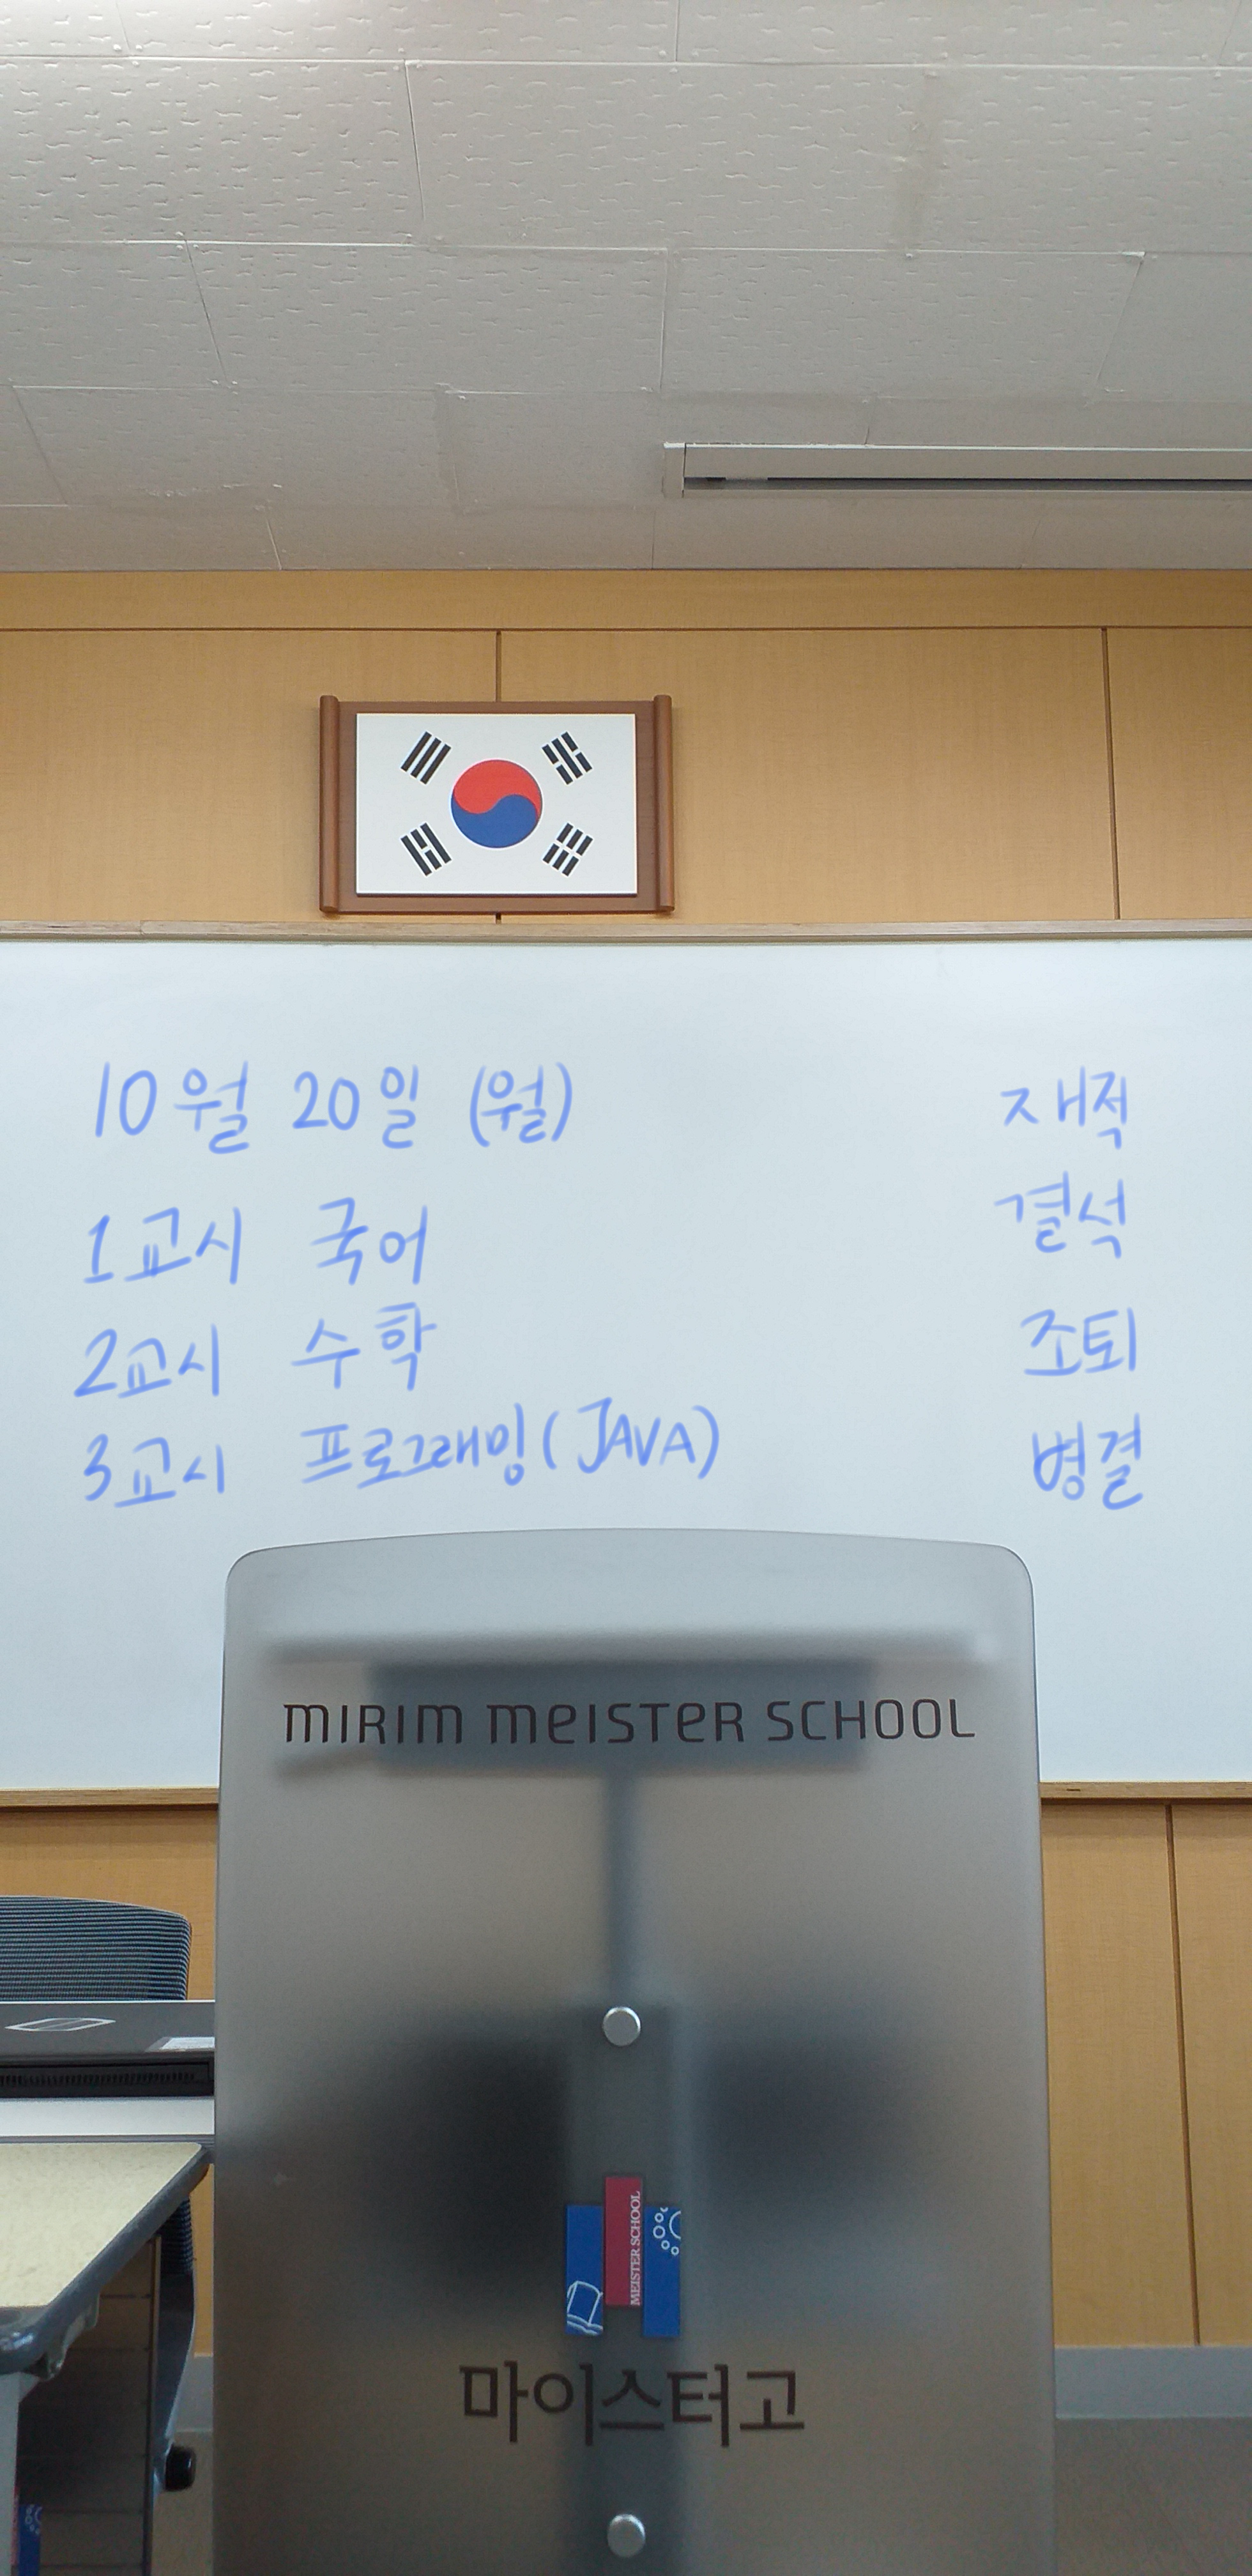 10월 20일 (월)
1교시 국어
2교시 수학
3교시 프로그래밍 (JAVA)
재적
결석
조퇴
병결
MIRIM MEISTER SCHOOL
MEISTER SCHOOL
마이스터고